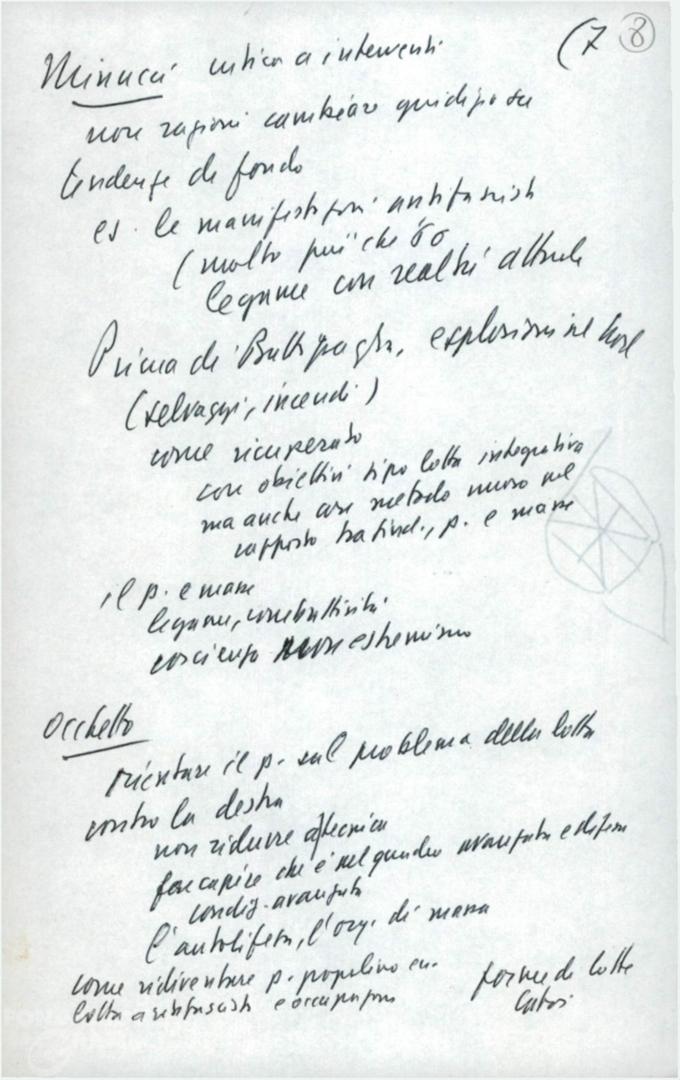 (7 8
Minucci critica a interventi
non ragioni cambiare giudizio su
tendenze di fondo
es. le manifestazioni antifasciste
(molto più che '60
legame con realtà attuale
Prima di Battipaglia, esplosioni nel
(selvaggi, incendi)
come ricuperato
con obiettivi tipo lotta integrativa
ma anche con metodo nuovo nel
rapporto tra sind., p. e masse
il p. e masse
legame, combattività
coscienza non estremismo
Occhetto
orientare il p. sul problema della lotta
contro la destra
non ridurre a tecnica
far capire che è nel quadro avanzata e difesa
condiz. avanzata
l'autodifesa, l'org. di massa
come ridiventare p. popolino
lotta antifascista e occupazione
forme di lotte